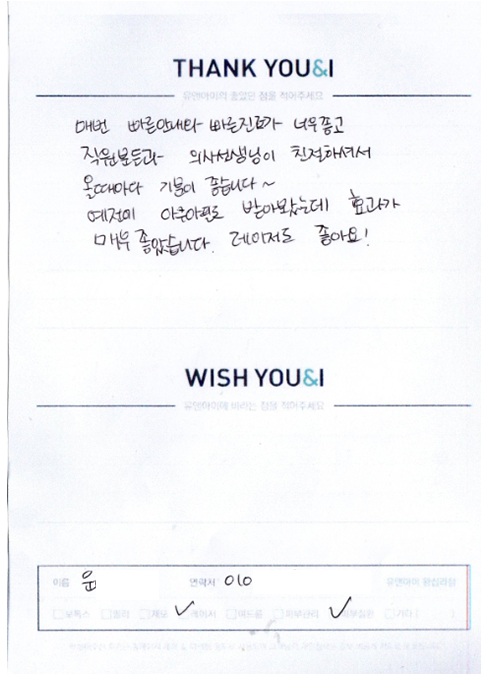 THANK YOU&I
유앤아이의 좋았던 점을 적어주세요
매번 빠른안내와 빠른진료가 너무좋고
직원분들과 의사선생님이 친절하셔서
올때마다 기분이 좋습니다~
예전에 아쿠아필도 받아봤는데 효과가
매우 좋았습니다. 레이저도 좋아요!
WISH YOU&I
유앤아이에 바라는 점을 적어주세요
이름 윤 연락처 010 유앤아이 왕십리점
보톡스 필러 제모 레이저 여드름 피부관리 기타 ( )